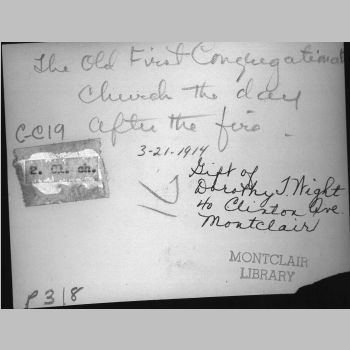 The Old First Congregational
Church the day
after the fire.
C-C19
3-21-1914
E. Cl. ch.
Gift of
Dorothy T. Wight
40 Clinton Ave.
Montclair
MONTCLAIR
LIBRARY
P318